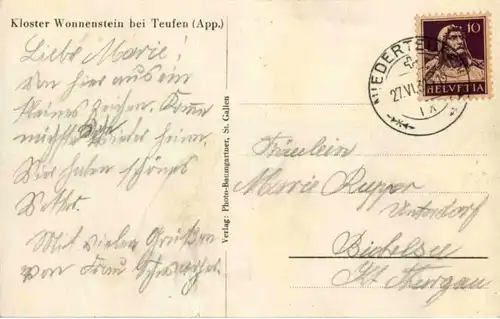 Kloster Wonnenstein bei Teufen (App.)
Liebe Marie!
Von hier aus ein
kleines Zeichen. Komme
nächste wieder heim.
Wir haben schönes
Wetter.
Mit vielen Grüßen
von Frau
Verlag: Photo-Baumgartner, St. Gallen
10
HELVETIA
NIEDERTEUFEN
27.VI.
Fräulein
Marie Rupper
Unterdorf
Bichelsee
Kt. Thurgau